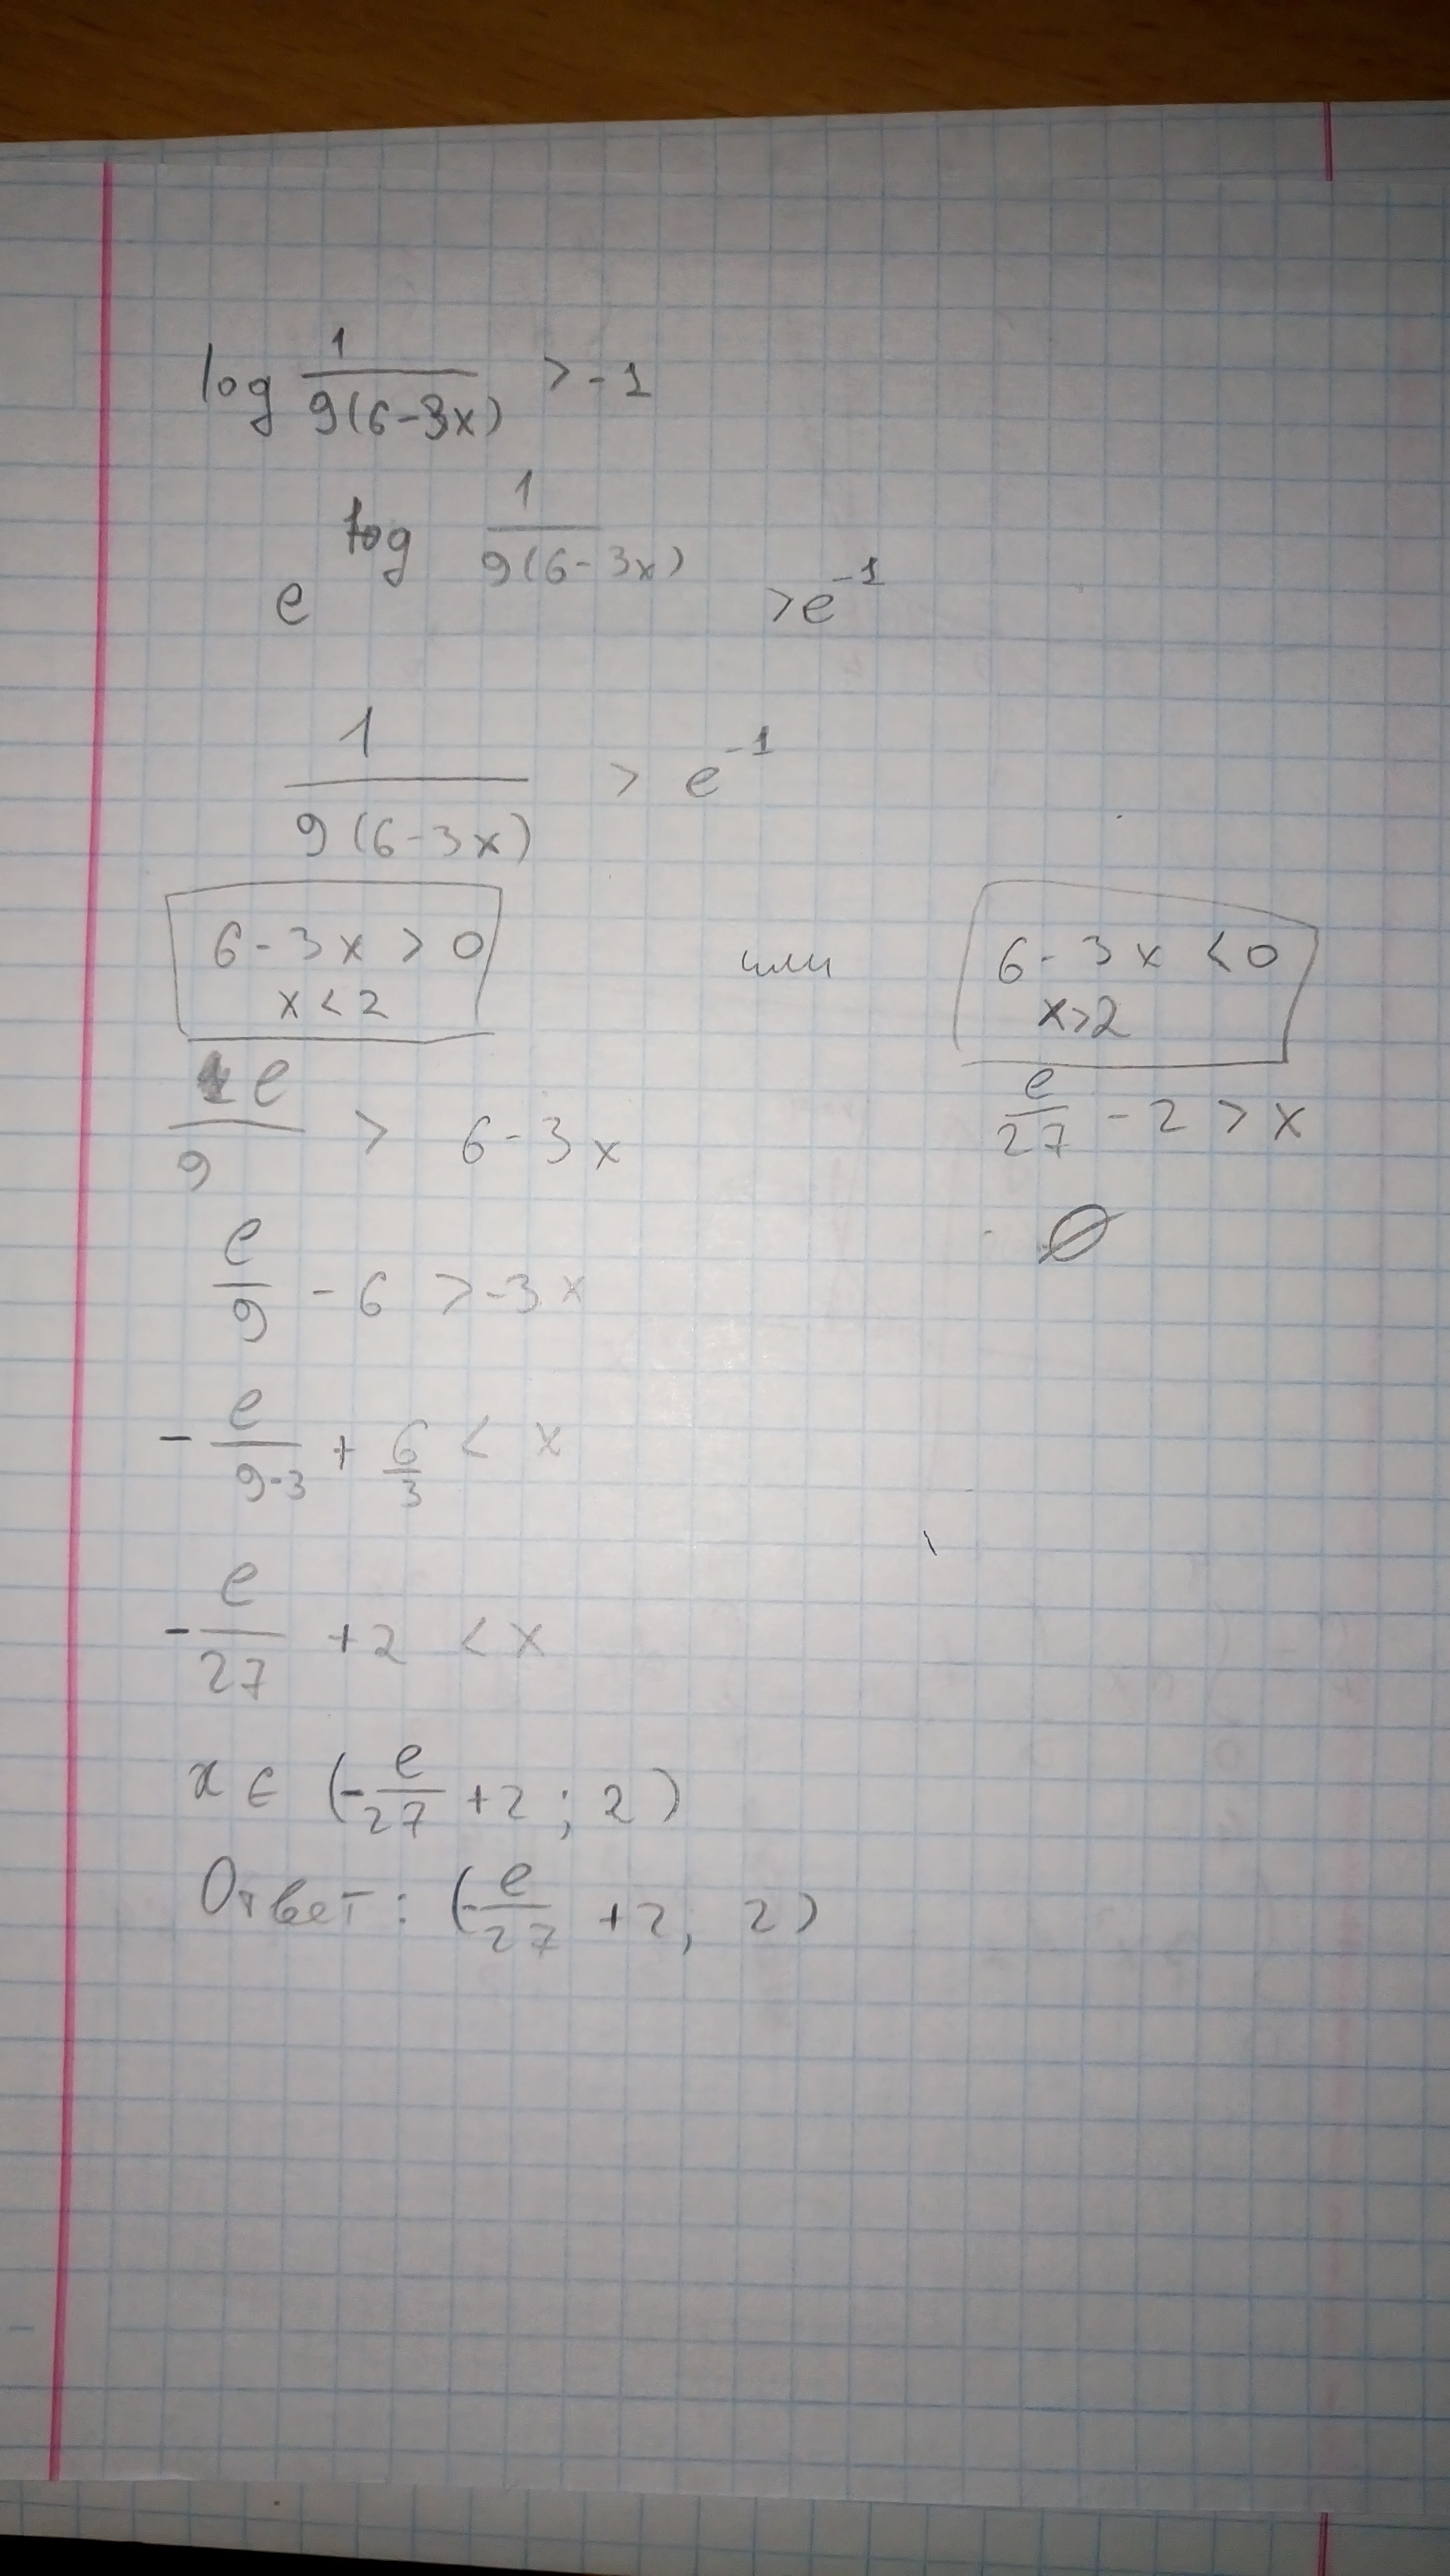 log 1/9(6-3x) > -1
e^log 1/9(6-3x) > e^-1
1/9(6-3x) > e^-1
6-3x > 0 или 6-3x < 0
x < 2 x>2
e/9 > 6-3x e/27 - 2 > x
e/9 - 6 > -3x ∅
- e/9·3 + 6/3 < x
- e/27 + 2 < x
x ∈ (- e/27 + 2 ; 2)
Ответ: (- e/27 + 2, 2)